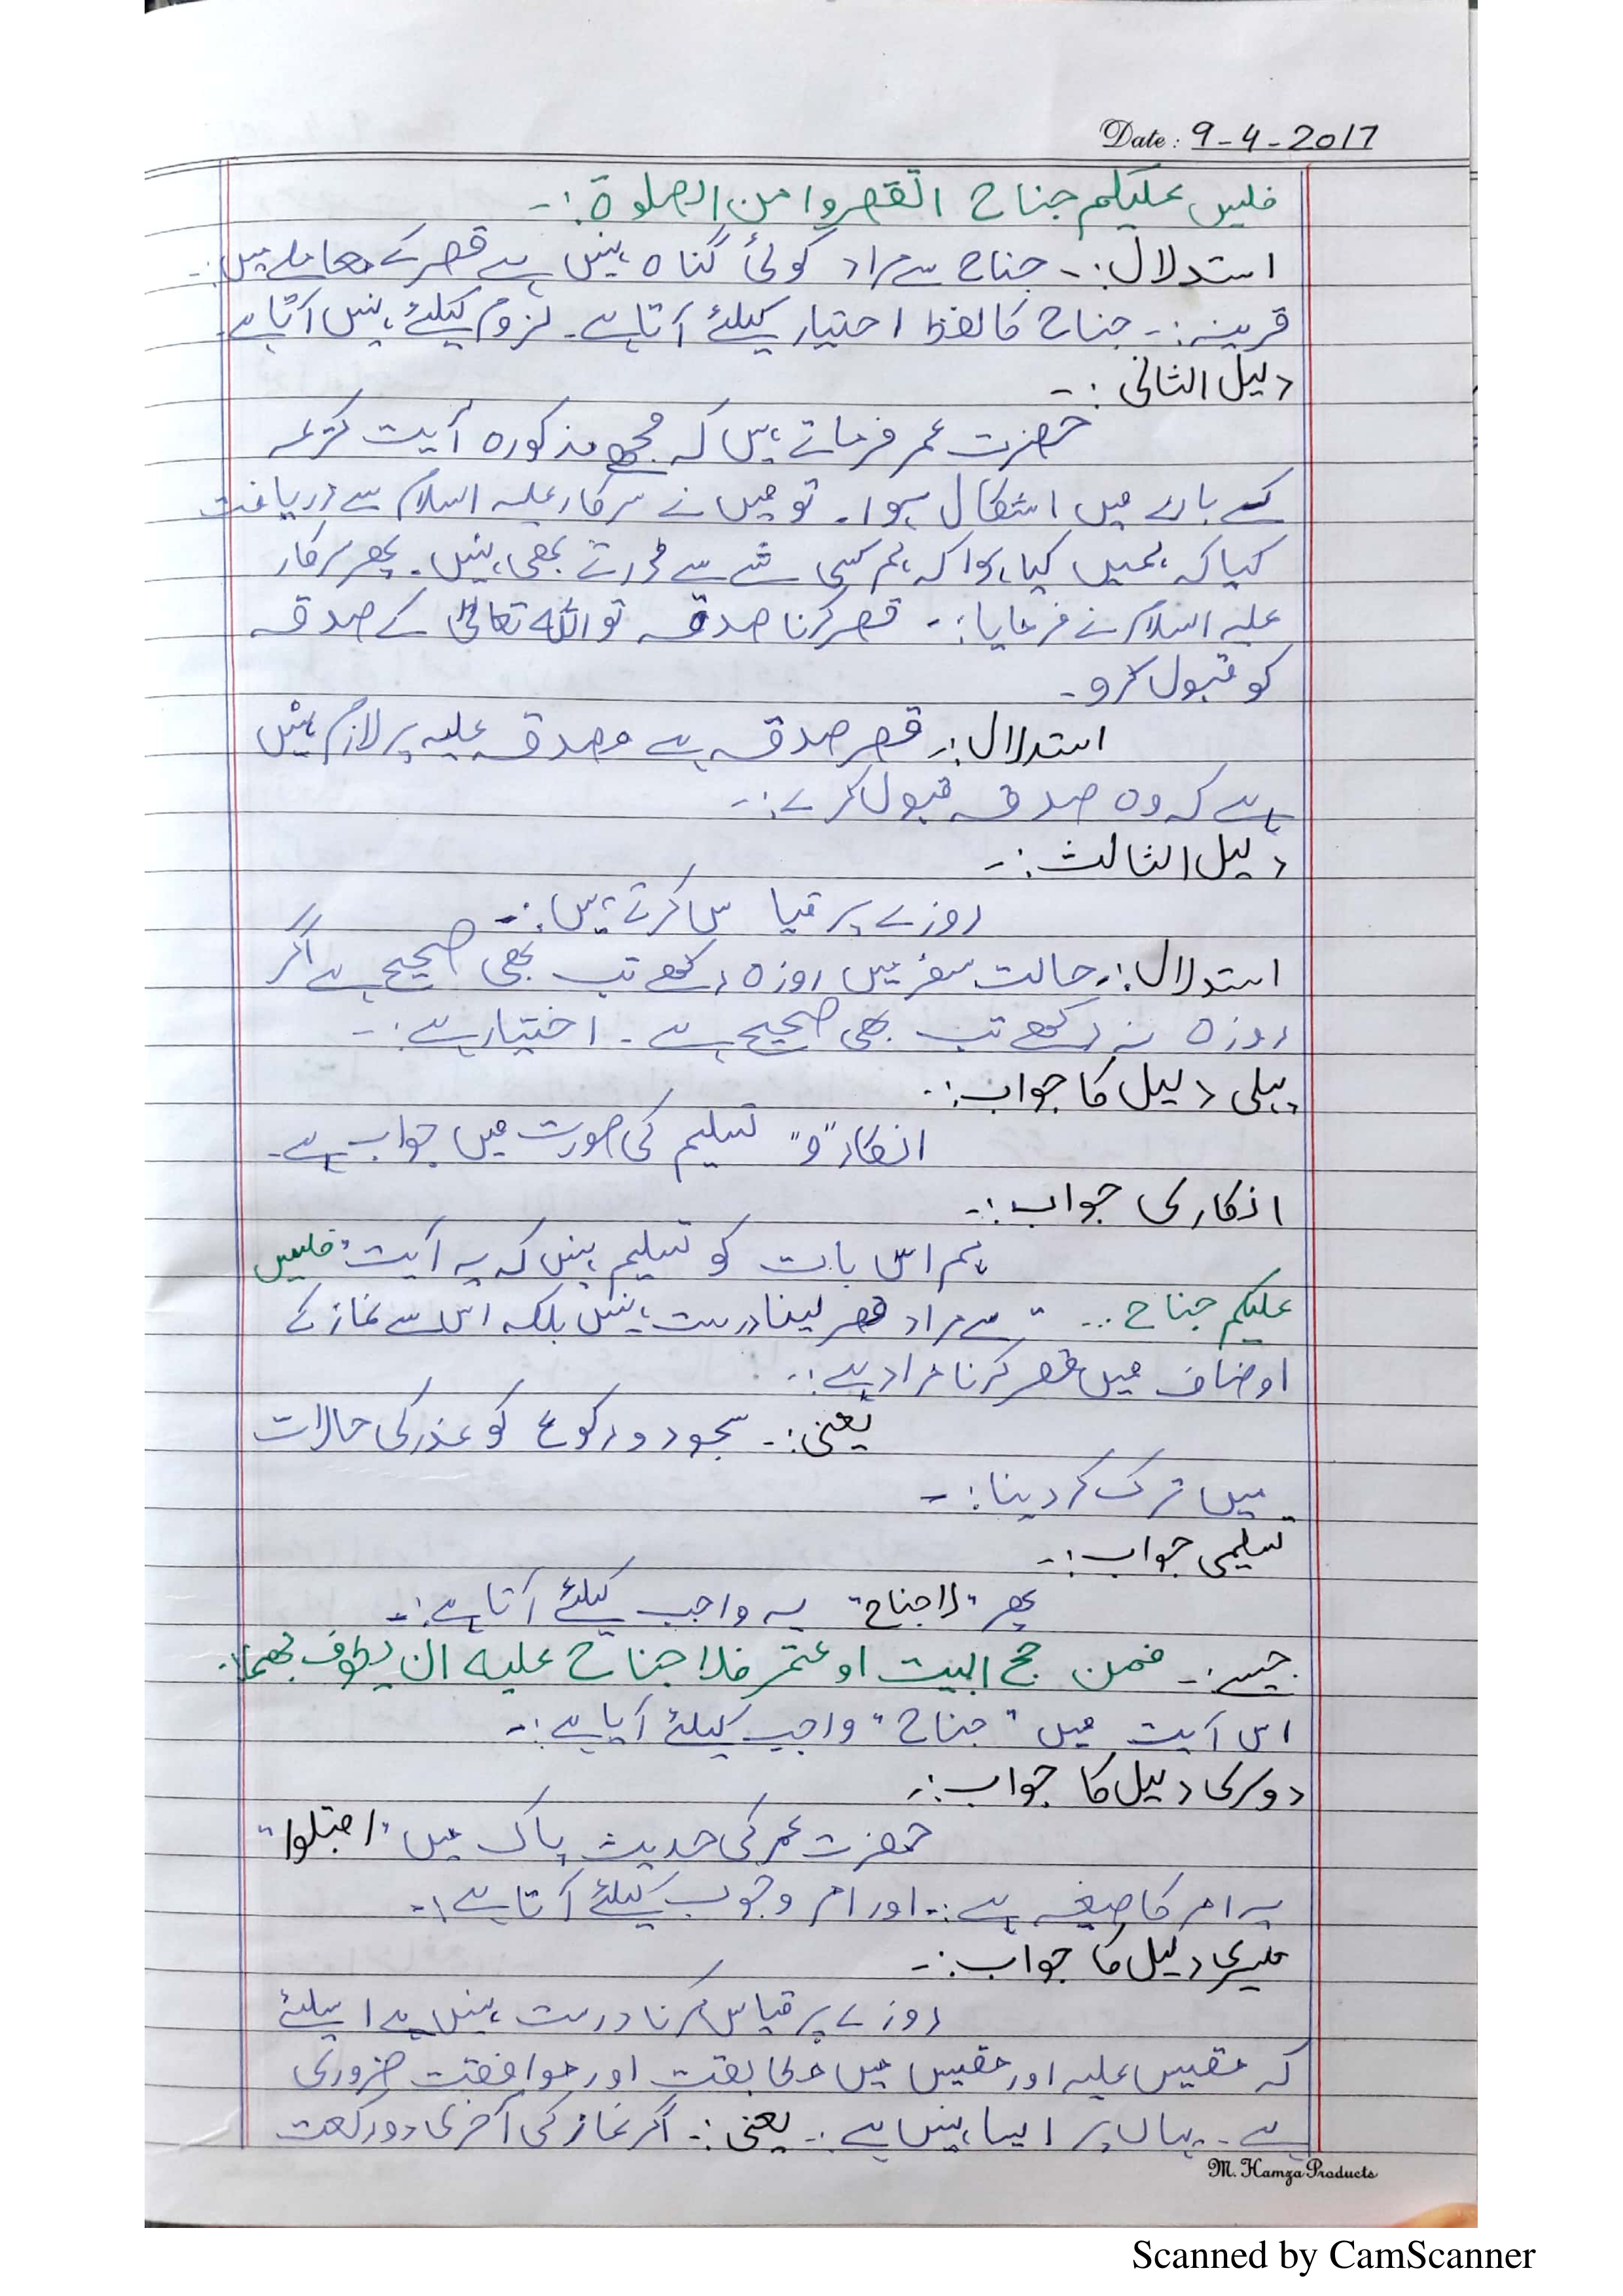 Date : 9-4-2017
فلیس علیکم جناح القصروا من الصلوۃ :-
استدلال :- جناح سے مراد کوئی گناہ نہیں ہے قصر کے معاملے میں :-
قرینہ :- جناح کا لفظ اختیار کیلئے آتا ہے ۔ لزوم کیلئے نہیں آتا ہے ۔
دلیل الثانی :-
حضرت عمر فرماتے ہیں کہ مجھے مذکورہ آیت کریمہ
کے بارے میں اشکال ہوا ۔ تو میں نے سرکار علیہ اسلام سے دریافت
کیا کہ ہمیں کیا ہوا کہ ہم کسی شے سے ڈرتے بھی نہیں ۔ پھر سرکار
علیہ اسلام نے فرمایا :- قصر کرنا صدقہ تو اللہ تعالیٰ کے صدقہ
کو قبول کرو ۔
استدلال :- قصر صدقہ ہے مصدقہ علیہ پر لازم نہیں
ہے کہ وہ صدقہ قبول کرے :-
دلیل الثالث :-
روزے پر قیاس کرتے ہیں :-
استدلال :- حالت سفر میں روزہ رکھے تب بھی صحیح ہے اگر
روزہ نہ رکھے تب بھی صحیح ہے ۔ اختیار ہے :-
پہلی دلیل کا جواب :-
انکار "و" تسلیم کی صورت میں جواب ہے ۔
انکاری جواب :-
ہم اس بات کو تسلیم نہیں کہ یہ آیت "فلیس
علیکم جناح ... " سے مراد قصر لینا درست نہیں بلکہ اس سے نماز کے
اوضاف میں قصر کرنا مراد ہے :-
یعنی :- سجود و رکوع کو عذر کی حالات
میں ترک کر دینا :-
تسلیمی جواب :-
پھر "لاجناح" یہ واجب کیلئے آتا ہے :-
جیسے :- فمن حج البیت او عتمر فلا جناح علیہ ان یطوف بھما :-
اس آیت میں "جناح" واجب کیلئے آیا ہے :-
دوسری دلیل کا جواب :-
حضرت عمر کی حدیث پاک میں "اقبلوا"
یہ امر کا صیغہ ہے :- اور امر وجوب کیلئے آتا ہے :-
تیسری دلیل کا جواب :-
روزے پر قیاس کرنا درست نہیں ہے اسلئے
کہ مقیس علیہ اور مقیس میں مطابقت اور موافقت ضروری
ہے ۔ یہاں پر ایسا نہیں ہے :- یعنی :- اگر نماز کی آخری دو رکعت
M. Hamza Products
Scanned by CamScanner